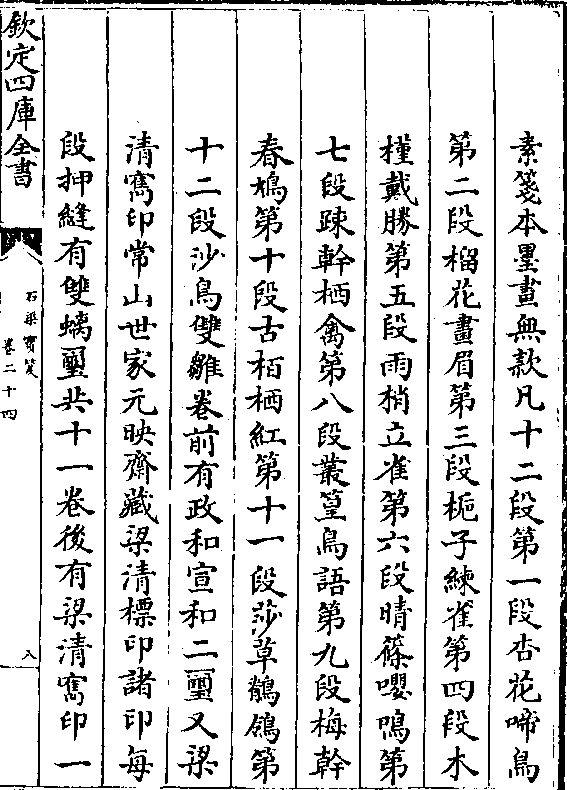 素箋本墨畫無款凡十二段第一段杏花啼鳥
第二段榴花畫眉第三段梔子練雀第四段木
槿戴勝第五段雨梢立雀第六段晴篠嚶鳴第
七段踈幹栖禽第八段叢篁鳥語第九段梅幹
春鳩第十段古栢栖紅第十一段莎草鶺鴒第
十二段沙鳥雙雛卷前有政和宣和二璽又梁
清寯印常山世家元映齋藏梁清標印諸印每
段押縫有雙螭璽共十一卷後有梁清寯印一
欽定四庫全書
石渠寳笈
卷二十四
八